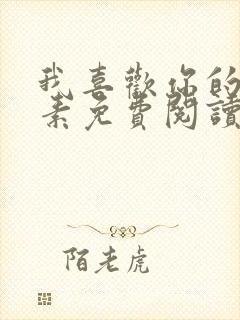 我喜歡你的
素免費閱讀
陌老虎